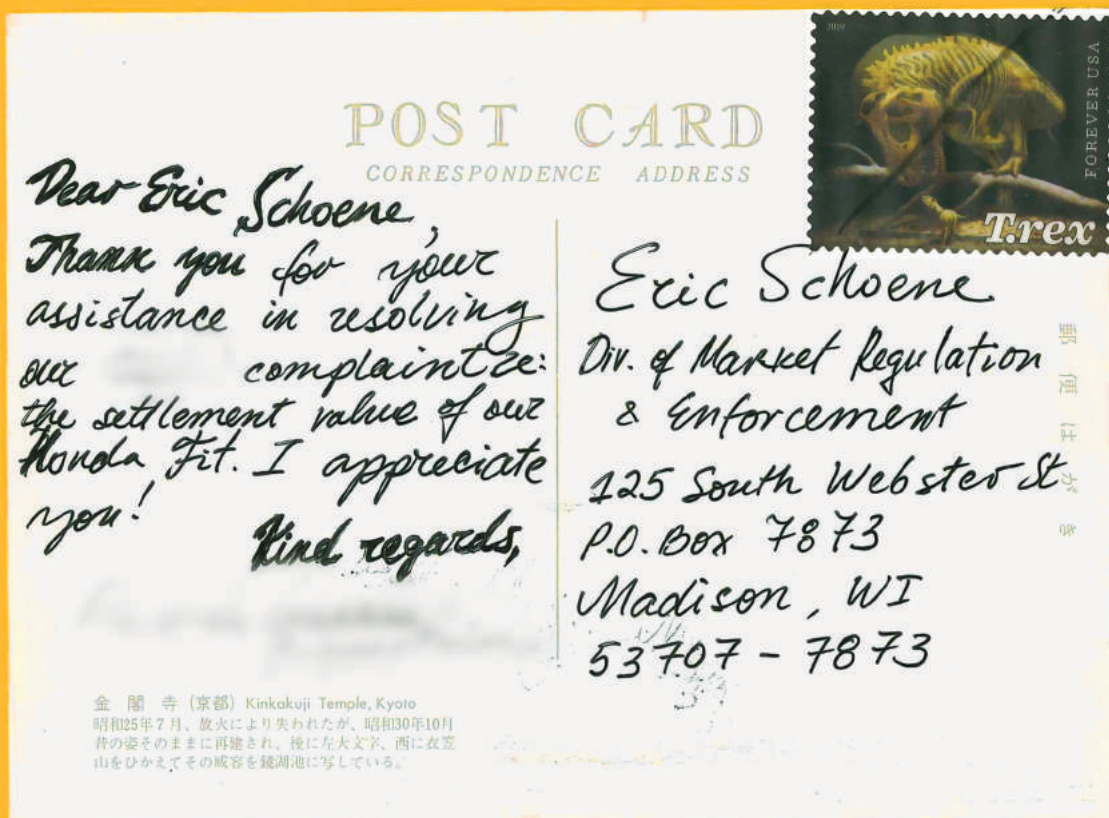 2019
FOREVER USA
T.rex
POST CARD
CORRESPONDENCE ADDRESS
Dear Eric Schoene,
Thank you for your
assistance in resolving
our complaint re:
the settlement value of our
Honda Fit. I appreciate
you!
Kind regards,
Eric Schoene
Div. of Market Regulation
& Enforcement
125 South Webster St
P.O. Box 7873
Madison, WI
53707-7873
郵便はがき
金閣寺(京都) Kinkakuji Temple, Kyoto
昭和25年7月、放火により失われたが、昭和30年10月
昔の姿そのままに再建され、後に左大文字、西に衣笠
山をひかえてその威容を鏡湖池に写している。